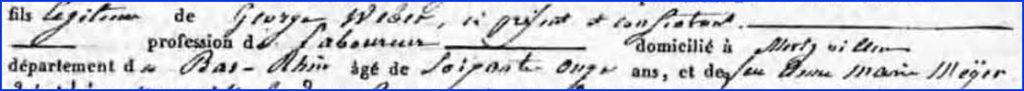 fils légitime de George Weber, ici présent et consentant.
profession de Laboureur domicilié à
département du Bas-Rhin âgé de soixante onze ans, et de feu Anne Marie Meÿer